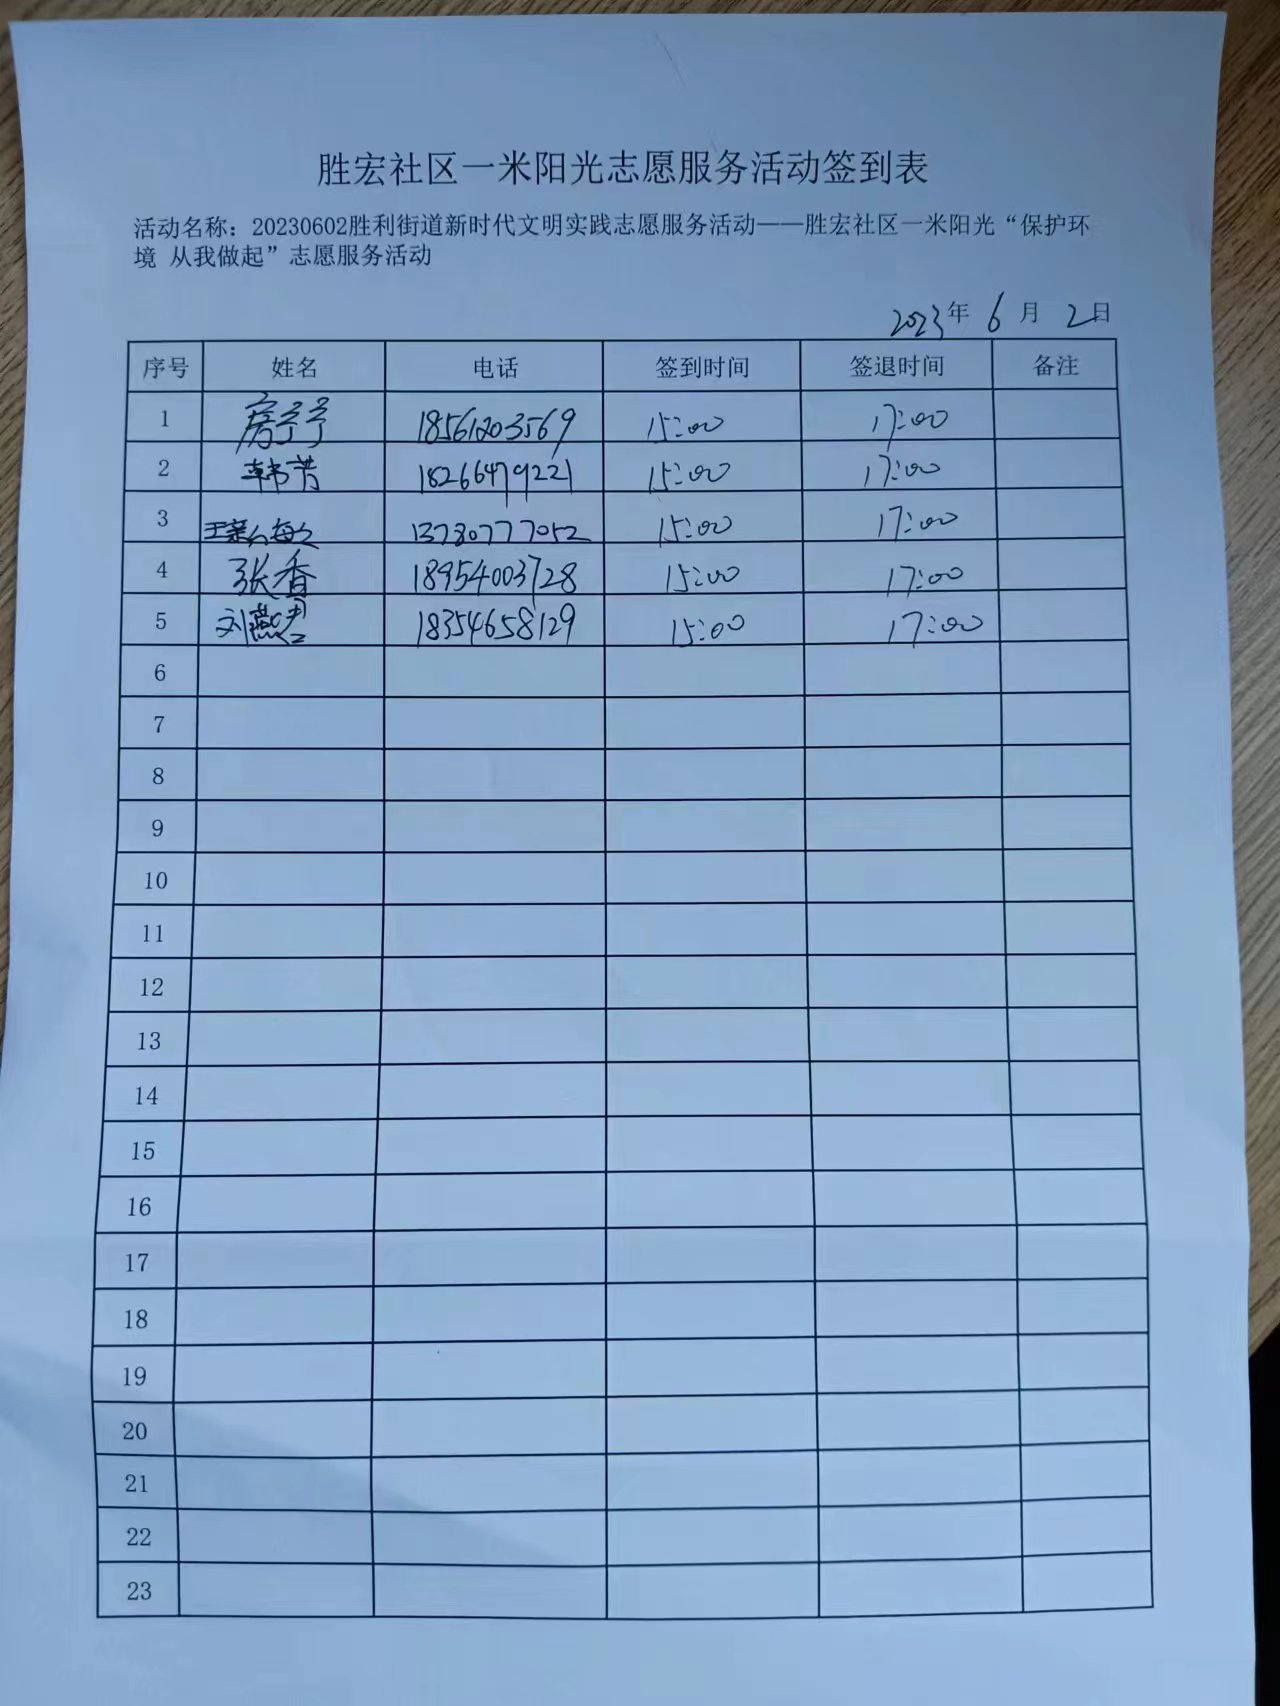 胜宏社区一米阳光志愿服务活动签到表
活动名称：20230602胜利街道新时代文明实践志愿服务活动——胜宏社区一米阳光“保护环
境 从我做起”志愿服务活动
2023年 6 月 2日
序号 姓名 电话 签到时间 签退时间 备注
1 房宁宁 18561203569 15:00 17:00
2 韩芳 18266479221 15:00 17:00
3 13780777052 15:00 17:00
4 张香 18954003728 15:00 17:00
5 刘燕君 18354658129 15:00 17:00
6
7
8
9
10
11
12
13
14
15
16
17
18
19
20
21
22
23